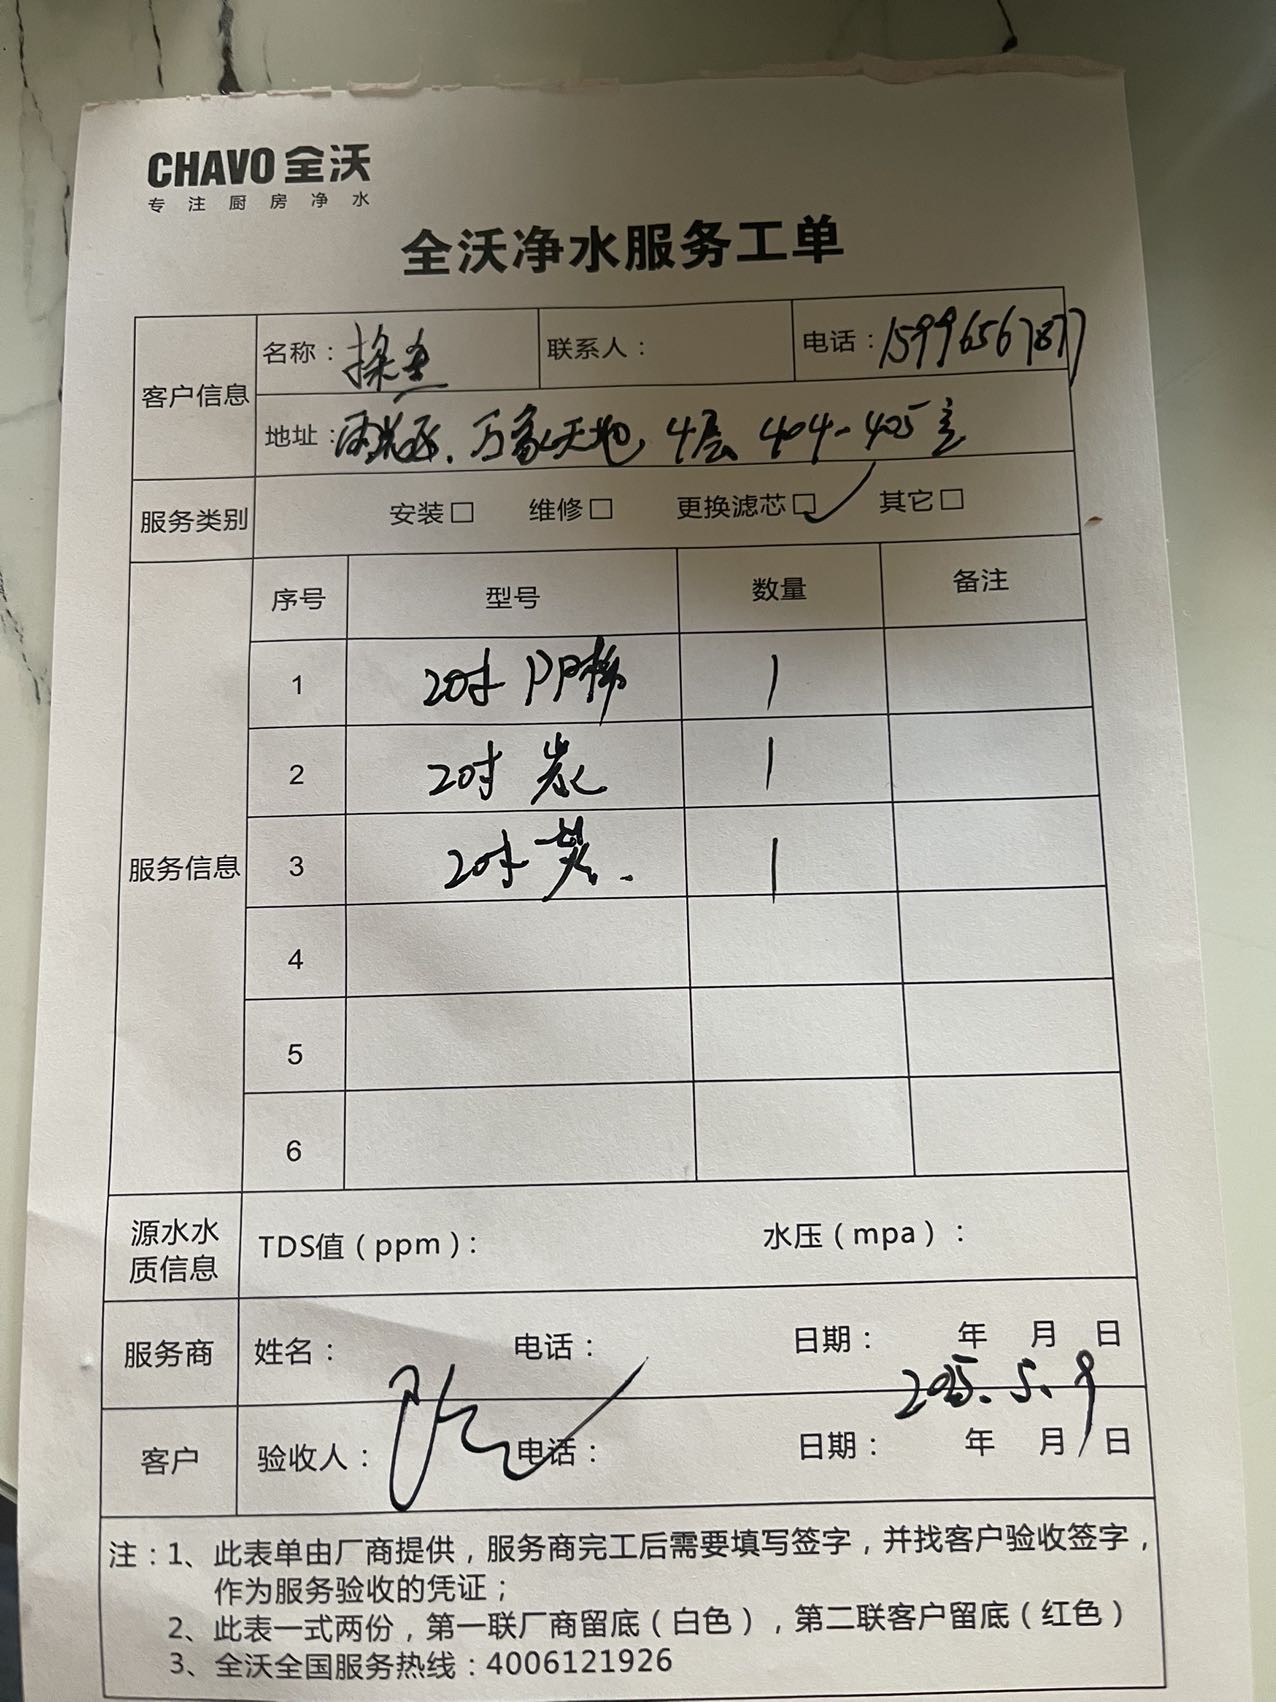 CHAVO 全沃
专注厨房净水
全沃净水服务工单
客户信息 名称： 联系人： 电话：15996567877
地址： 万家天地 4层 404-405
服务类别 安装□ 维修□ 更换滤芯□✓ 其它□
服务信息 序号 型号 数量 备注
1 20寸 PP棉 1
2 20寸 炭 1
3 20寸 1
4
5
6
源水水质信息 TDS值（ppm）： 水压（mpa）：
服务商 姓名： 电话： 日期： 年 月 日
2025.5.9
客户 验收人： 电话： 日期： 年 月 日
注：1、此表单由厂商提供，服务商完工后需要填写签字，并找客户验收签字，
作为服务验收的凭证；
2、此表一式两份，第一联厂商留底（白色），第二联客户留底（红色）
3、全沃全国服务热线：4006121926